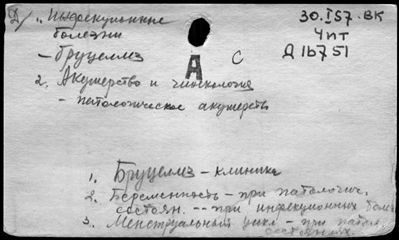 Д/ „Инфекционные
болезни
– Бруцеллез
2. Акушерство и гинекология
– патологическое акушерств
А
С
30.I57.ВК
Чит
Д16751
1. Бруцеллез – клиника
2. Беременность – при патологич.
состоян. -- при инфекционных бол
3. Менструальный цикл – при патол.
состояниях